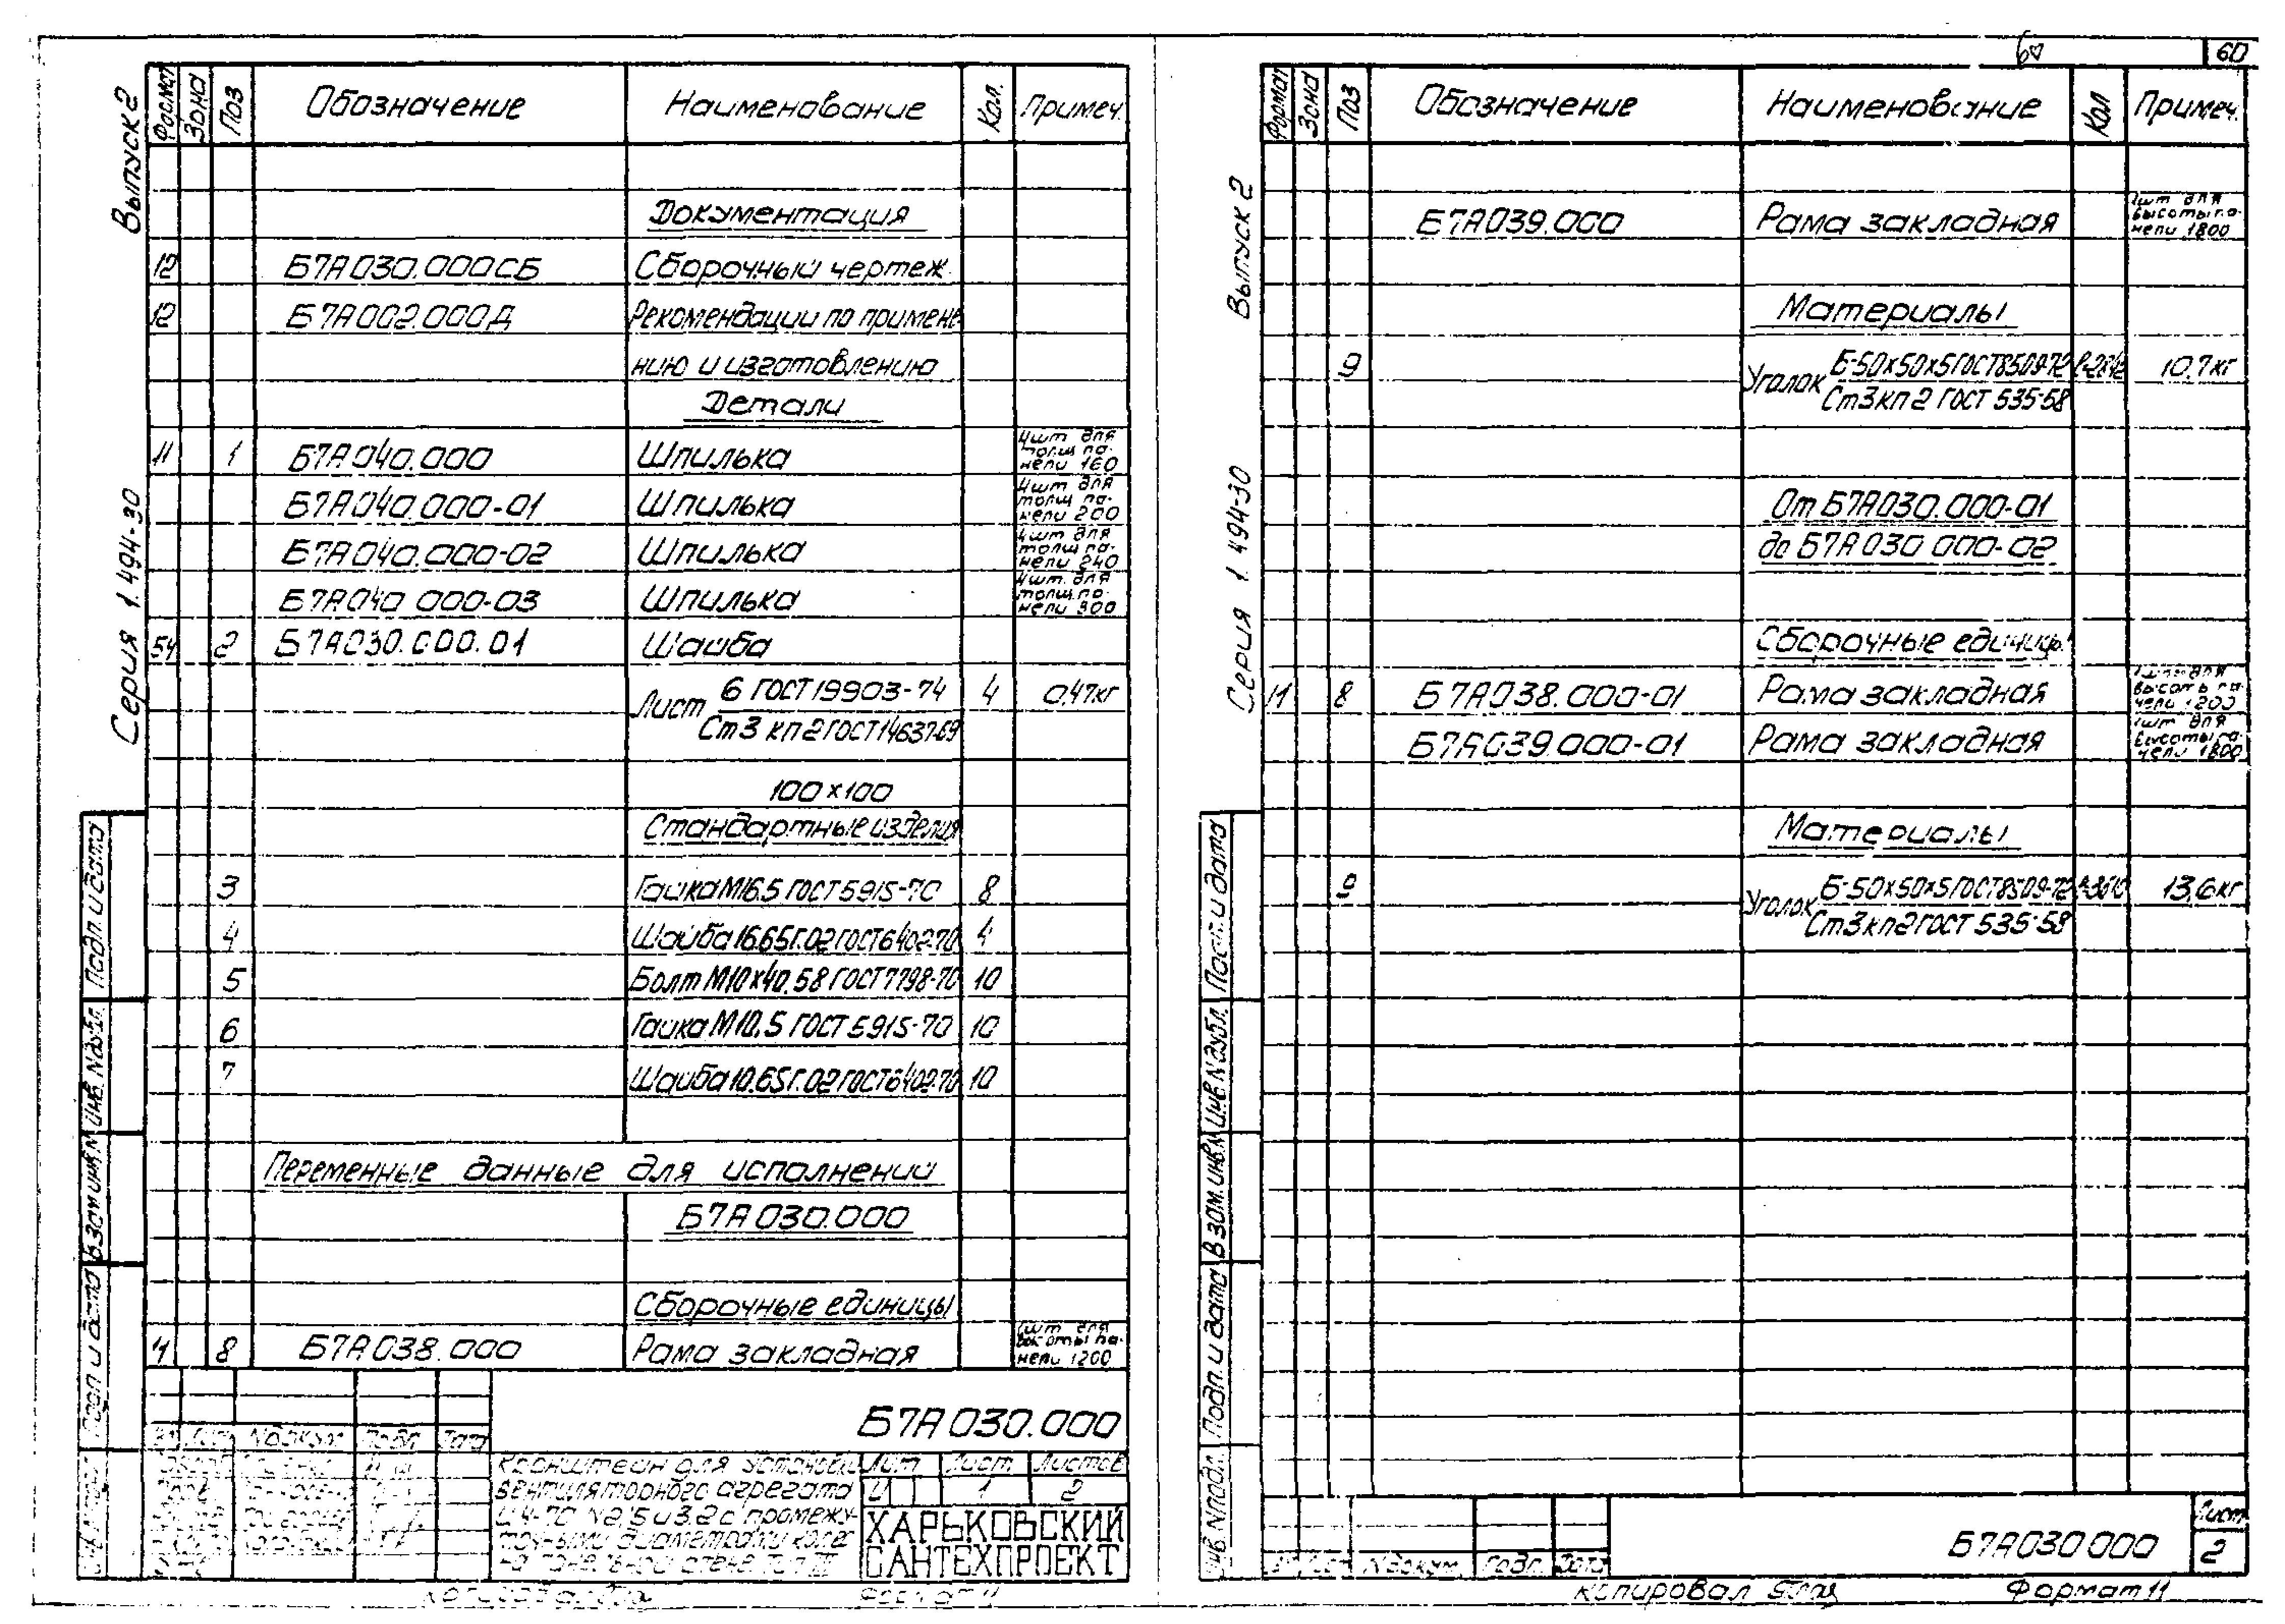 60
Выпуск 2
Серия 1.494-30
Формат Зона Поз Обозначение Наименование Кол. Примеч.
Документация
12 Б7А030.000СБ Сборочный чертеж
12 Б7А002.000Д Рекомендации по примене
нию и изготовлению
Детали
11 1 Б7А040.000 Шпилька 4шт для толщ па- нели 160
Б7А040.000-01 Шпилька 4шт для толщ па- нели 200
Б7А040.000-02 Шпилька 4шт для толщ па- нели 240
Б7А040 000-03 Шпилька 4шт. для толщ. па- нели 300
БЧ 2 Б7А030.000.01 Шайба
Лист 6 ГОСТ 19903-74 4 0,47кг
Ст3 кп2 ГОСТ 14637-69
100×100
Стандартные изделия
3 Гайка М16.5 ГОСТ 5915-70 8
4 Шайба 16.65Г.02 ГОСТ 6402-70 4
5 Болт М10×40.58 ГОСТ 7798-70 10
6 Гайка М10.5 ГОСТ 5915-70 10
7 Шайба 10.65Г.02 ГОСТ 6402-70 10
Переменные данные для исполнений
Б7А030.000
Сборочные единицы
11 8 Б7А038.000 Рама закладная 1шт для высоты па- нели 1200
Подп. и дата
Инв. №дубл.
Взам инв.№
Подп и дата
Б7А030.000
Лист №докум. Подп Дата
Кронштейн для установки
вентиляторного агрегата
Ц4-70 №2,5 и 3,2 с промежу-
точными диаметрами колес
на панельной стене. Тип III
Лит Лист Листов
И 1 2
ХАРЬКОВСКИЙ
САНТЕХПРОЕКТ
Выпуск 2
Серия 1.494-30
Формат Зона Поз Обозначение Наименование Кол Примеч.
Б7А039.000 Рама закладная 1шт для высоты па- нели 1800
Материалы
9 Уголок Б-50×50×5 ГОСТ 8509-72 10,7кг
Ст3кп2 ГОСТ 535-58
От Б7А030.000-01
до Б7А030 000-02
Сборочные единицы
11 8 Б7А038.000-01 Рама закладная 1шт для высоты па- нели 1200
Б7А039.000-01 Рама закладная 1шт для высоты па- нели 1800
Материалы
9 Уголок Б-50×50×5 ГОСТ 8509-72 13,6кг
Ст3кп2 ГОСТ 535-58
Подп. и дата
Инв.№дубл.
Взам.инв.№
Подп. и дата
Инв.№подл.
Лист №докум. Подп. Дата
Б7А030 000
Лист
2
Копировал
Формат 11